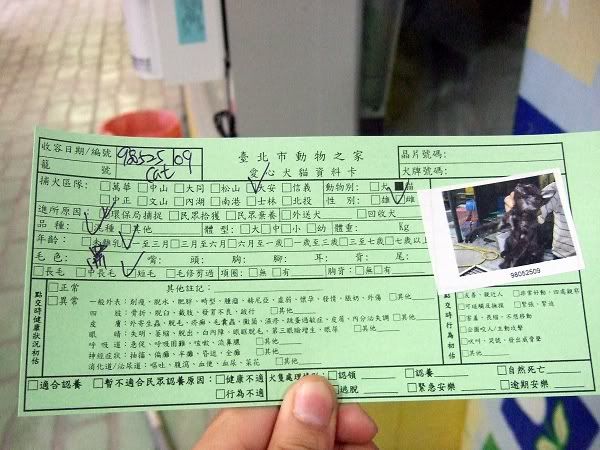 臺北市動物之家
愛心犬貓資料卡
收容日期/編號 98525109
籠 號 cat
晶片號碼:
犬牌號碼:
捕犬區隊: □萬華□中山□大同□松山□大安□信義 動物別: □犬■貓
□中正□文山□內湖□南港□士林□北投 性 別: □雄□雌
進所原因: □環保局捕捉 □民眾拾獲 □民眾棄養 □外送犬 □回收犬
品 種: □其他 體 型: □大□中□小□幼 體重: Kg
年齡: □未離乳 □一至三月 □三至六月 □六月至一歲 □一歲至三歲 □三至七歲 □七歲以上
毛 色: 嘴: 頭: 胸: 腳: 耳: 背: 尾:
□長毛 □中長毛 □短毛 □毛修剪過 項圈: □無□有 胸背: □無□有
98052509
點交時健康狀況初估
□正常 其他註記:
□異常 一般外表: 削瘦、脫水、肥胖、畸型、腫瘤、赫尼亞、虛弱、懷孕、發情、脹奶、外傷 □其他
四 肢: 骨折、脫臼、截肢、發育不良、跛行 □其他
皮 膚: 外寄生蟲、脫毛、疥癬、毛囊蟲、黴菌、濕疹、跳蚤過敏症、皮屑、內分泌失調 □其他
眼 睛: 失明、萎縮、脫出、白內障、眼瞼脫毛、第三眼瞼增生、眼屎 □其他
呼 吸 道: 急促、呼吸困難、咳嗽、流鼻膿 □其他
神經症狀: 抽搐、偏癱、半癱、昏迷、全癱 □其他
消化道/泌尿道: 嘔吐、腹瀉、血便、血尿、菜花 □其他
點交時行為初估
□友善、親近人 □非常好動、四處觀察
□可碰觸及撫摸 □緊張、緊迫
□害羞、畏縮、不想移動
□企圖咬人/主動攻擊
□吠叫、哭號、發出威脅聲
□其他
□適合認養 □暫不適合民眾認養原因: □健康不適
□行為不適
犬隻處理情形: □認領 □認養 □自然死亡
□逃脫 □緊急安樂 □逾期安樂